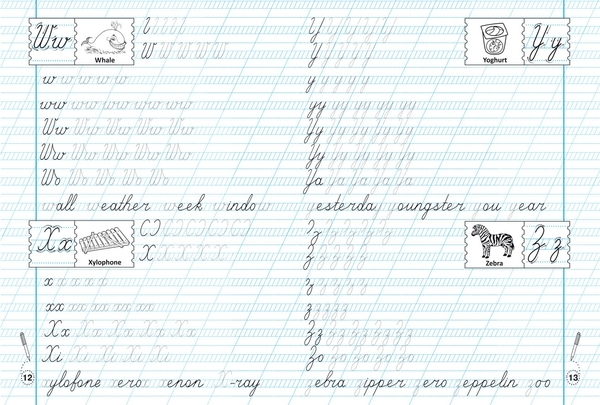 Ww
Whale
W W W W W W
w w w w w
ww ww ww ww ww ww
Ww Ww Ww Ww Ww
Wo Wo Wo Wo Wo
wall weather week window
Xx
Xylophone
X X X X X X
x x x x x
xx xx xx xx xx xx
Xx Xx Xx Xx Xx Xx
Xi Xi Xi Xi Xi Xi
xylofone xerox xenon X-ray
12
Yoghurt
Yy
Y Y Y Y Y
y y y y y
yy yy yy yy yy
Yy Yy Yy Yy Yy
Ya Ya Ya Ya Ya
yesterday youngster you year
Zebra
Zz
z z z z z
zz zz zz zz
Zz Zz Zz Zz Zz
Zo Zo Zo Zo Zo
zebra zipper zero zeppelin zoo
13